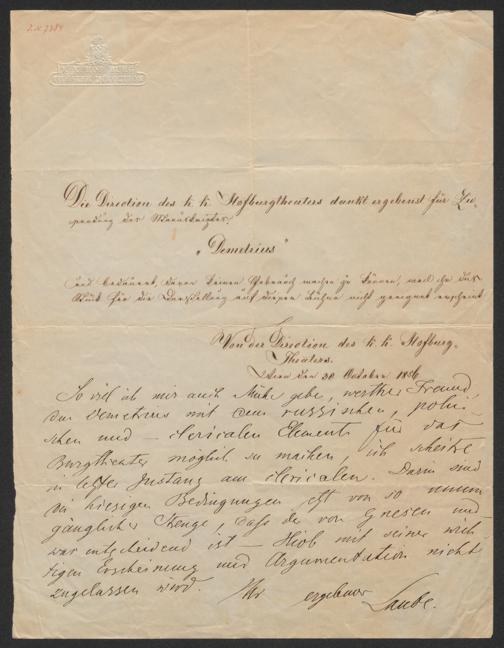 I.N. 7384
Die Direction des k. k. Hofburgtheaters dankt ergebenst für Zu-
sendung des Manuscriptes:
„Demetrius"
und bedauert, davon keinen Gebrauch machen zu können, weil ihr das
Stück für die Darstellung auf dieser Bühne nicht geeignet erscheint.
Von der Direction des k. k. Hofburg-
Theaters.
Wien den 30 October 1856
So viel ich mir auch Mühe gebe, werther Freund
den Demetrius mit dem russischen, polni-
schen und – clericalen Elemente für das
Burgtheater möglich zu machen, ich scheitre
in letzter Instanz am clericalen. Darin sind
die hiesigen Bedingungen oft von so
gänglicher Strenge, dass der von Gnesen und
war entscheidend ist – Hiob mit seiner wich-
tigen Erscheinung und Argumentation nicht
zugelassen wird. Ihr ergebener Laube.